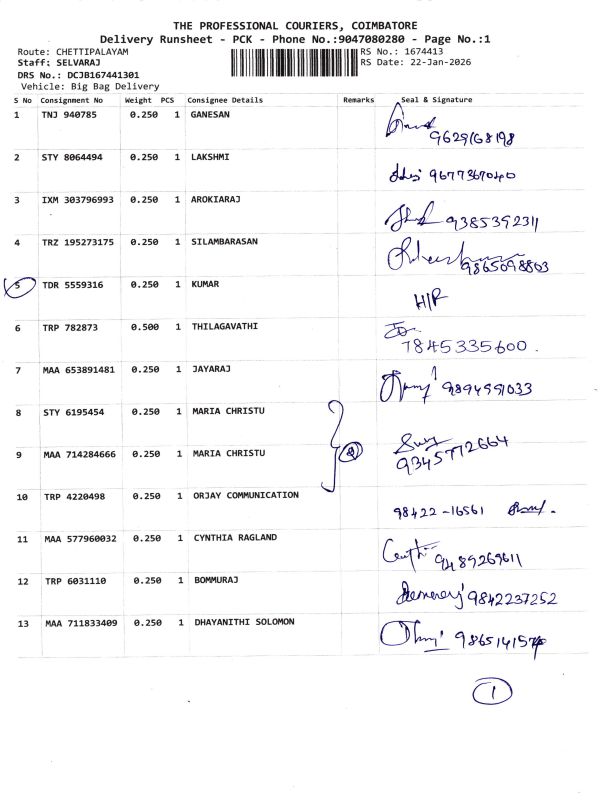 THE PROFESSIONAL COURIERS, COIMBATORE
Delivery Runsheet - PCK - Phone No.:9047080280 - Page No.:1
Route: CHETTIPALAYAM RS No.: 1674413
Staff: SELVARAJ RS Date: 22-Jan-2026
DRS No.: DCJB167441301
Vehicle: Big Bag Delivery
S No Consignment No Weight PCS Consignee Details Remarks Seal & Signature
1 TNJ 940785 0.250 1 GANESAN
9629168198
2 STY 8064494 0.250 1 LAKSHMI
9677367040
3 IXM 303796993 0.250 1 AROKIARAJ
9385392311
4 TRZ 195273175 0.250 1 SILAMBARASAN
9865098803
5 TDR 5559316 0.250 1 KUMAR
H/R
6 TRP 782873 0.500 1 THILAGAVATHI
7845335600.
7 MAA 653891481 0.250 1 JAYARAJ
9894991033
8 STY 6195454 0.250 1 MARIA CHRISTU
9 MAA 714284666 0.250 1 MARIA CHRISTU
9345772664
10 TRP 4220498 0.250 1 ORJAY COMMUNICATION
98422-16561
11 MAA 577960032 0.250 1 CYNTHIA RAGLAND
9489269611
12 TRP 6031110 0.250 1 BOMMURAJ
9842237252
13 MAA 711833409 0.250 1 DHAYANITHI SOLOMON
1